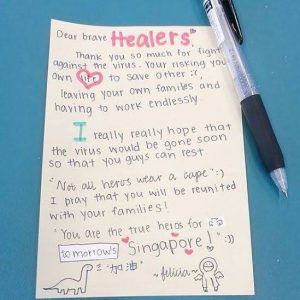 Dear brave Healers,
Thank you so much for fight
against the virus. Your risking you
own life to save other :'(,
leaving your own familes and
having to work endlessly.
I really really hope that
the virus would be gone soon
so that you guys can rest
"Not all heros wear a cape" :)
I pray that you will be reunited
with your families!
"You are the true heros for
tomorrows Singapore!" :))
加油
~felicia~